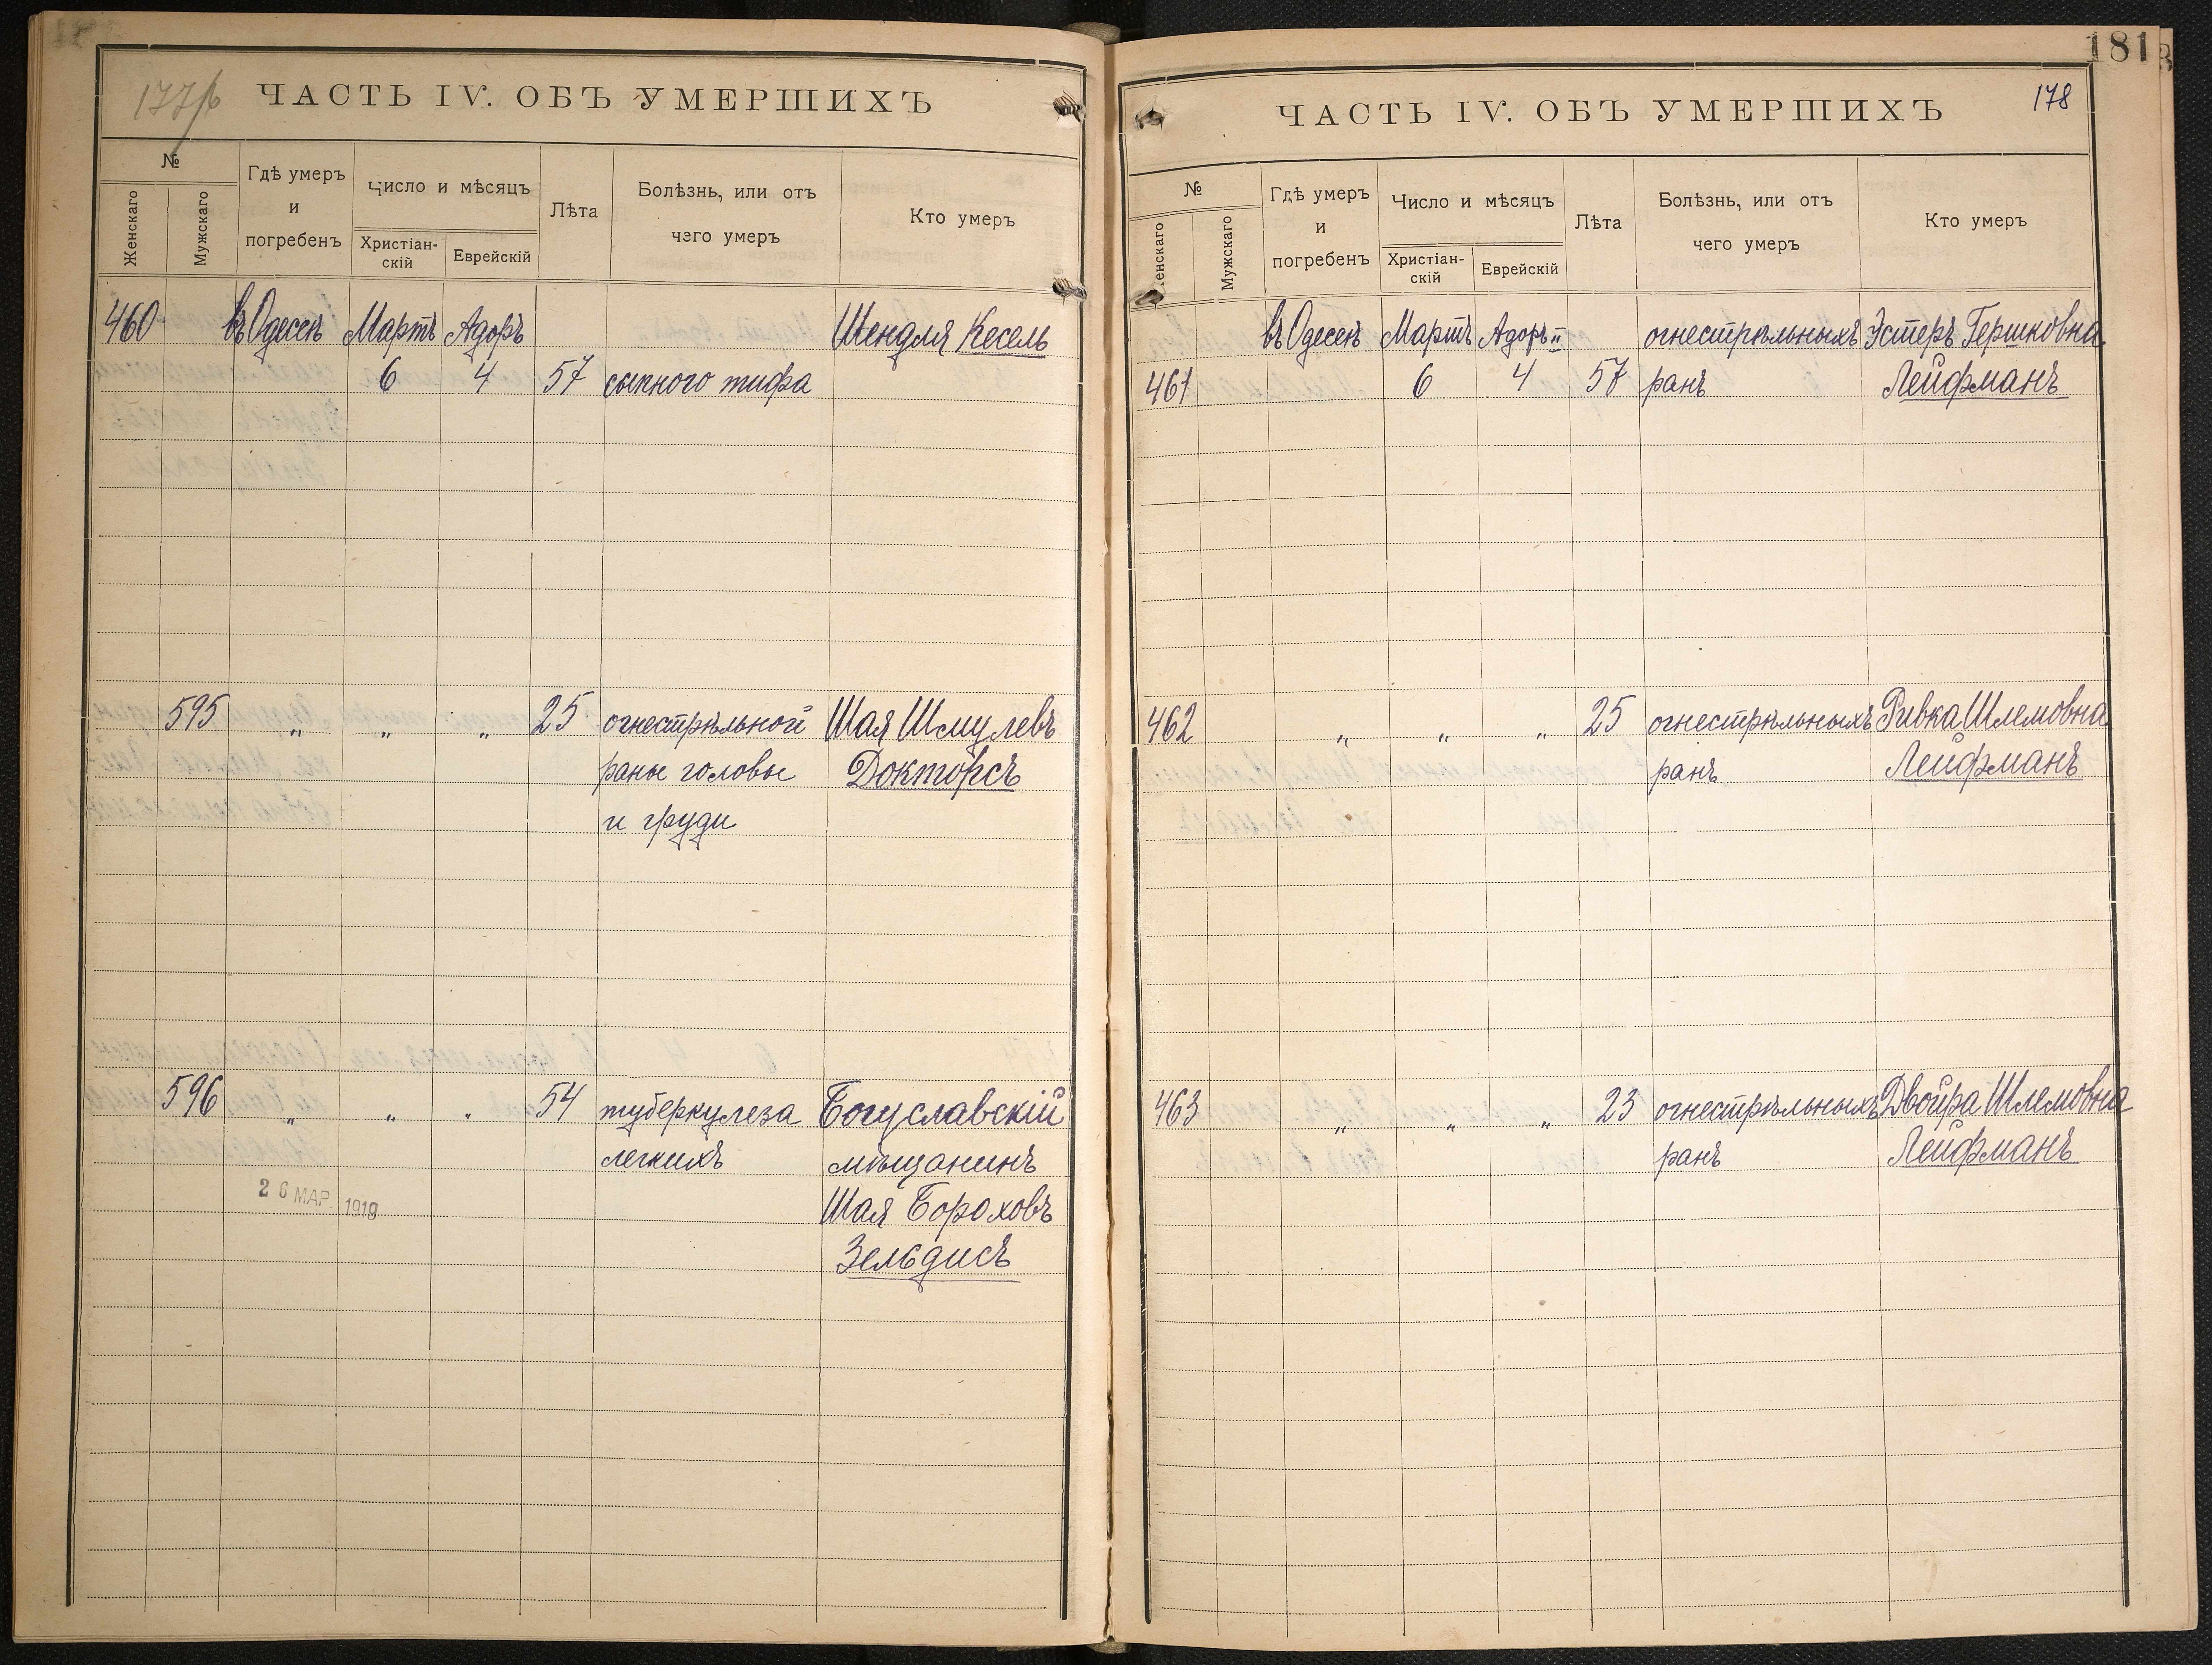 177/б
ЧАСТЬ IV. ОБЪ УМЕРШИХЪ
№
Женскаго
Мужскаго
Гдѣ умеръ
и
погребенъ
Число и мѣсяцъ
Христіан-
скій
Еврейскій
Лѣта
Болѣзнь, или отъ
чего умеръ
Кто умеръ
460 въ Одессѣ Мартъ Адоръ Шендля Кесель
6 4 57 сыпного тифа
595 „ „ „ 25 огнестрѣльной Шая Шмулевъ
раны головы Докторсъ
и груди
596 „ „ „ 54 туберкулеза Богуславскій
легкихъ мѣщанинъ
26 МАР. 1919 Шая Бороховъ
Зельдисъ
181
178
ЧАСТЬ IV. ОБЪ УМЕРШИХЪ
№
Женскаго
Мужскаго
Гдѣ умеръ
и
погребенъ
Число и мѣсяцъ
Христіан-
скій
Еврейскій
Лѣта
Болѣзнь, или отъ
чего умеръ
Кто умеръ
въ Одессѣ Мартъ Адоръ II огнестрѣльныхъ Эстеръ Гершковна
461 6 4 57 ранъ Лейфманъ
462 „ „ „ 25 огнестрѣльныхъ Ривка Шлемовна
ранъ Лейфманъ
463 „ „ „ 23 огнестрѣльныхъ Двойра Шлемовна
ранъ Лейфманъ